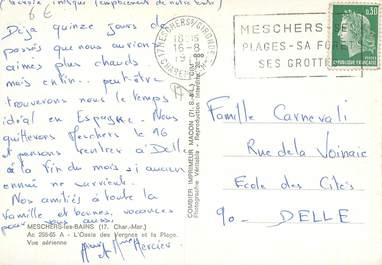 (la croix indique l'emplacement de notre tente)
6 €
Déjà quinze jours de
passés que nous aurions
aimés plus chauds
mais enfin.. peut-être
trouverons nous le temps
idéal en Espagne. Nous
quitterons Meschers le 16
et pensons rentrer à Delle
à la fin du mois si aucun
ennui ne survient.
Nos amitiés à toute la
famille et bonnes vacances
pour vous aussi.
MESCHERS-les-BAINS (17. Char.-Mar.)
Ac 255-65 A - L'Oasis des Vergnes et la Plage.
Vue aérienne
Mme Mercier
COMBIER IMPRIMEUR MACON (71. S.-&-L.) "CIM"
Photographie Véritable - Reproduction Interdite
17 MESCHERS S/GIRONDE
18-15
16-8
19
CHARENTE
MESCHERS
PLAGES-SA FORÊT
SES GROTTES
0,30
Famille Carnevali
Rue de la Voinaie
Ecole des Cités
90 - DELLE